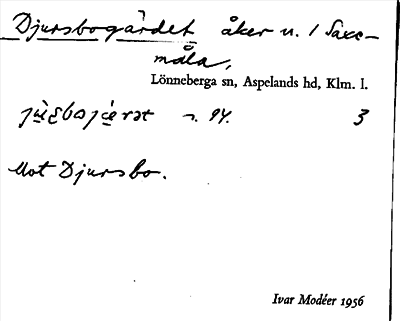 Djursbogärdet åker n. 1 Saxe-
måla,
Lönneberga sn, Aspelands hd, Klm. l.
n. 94. 3
Mot Djursbo.
Ivar Modéer 1956